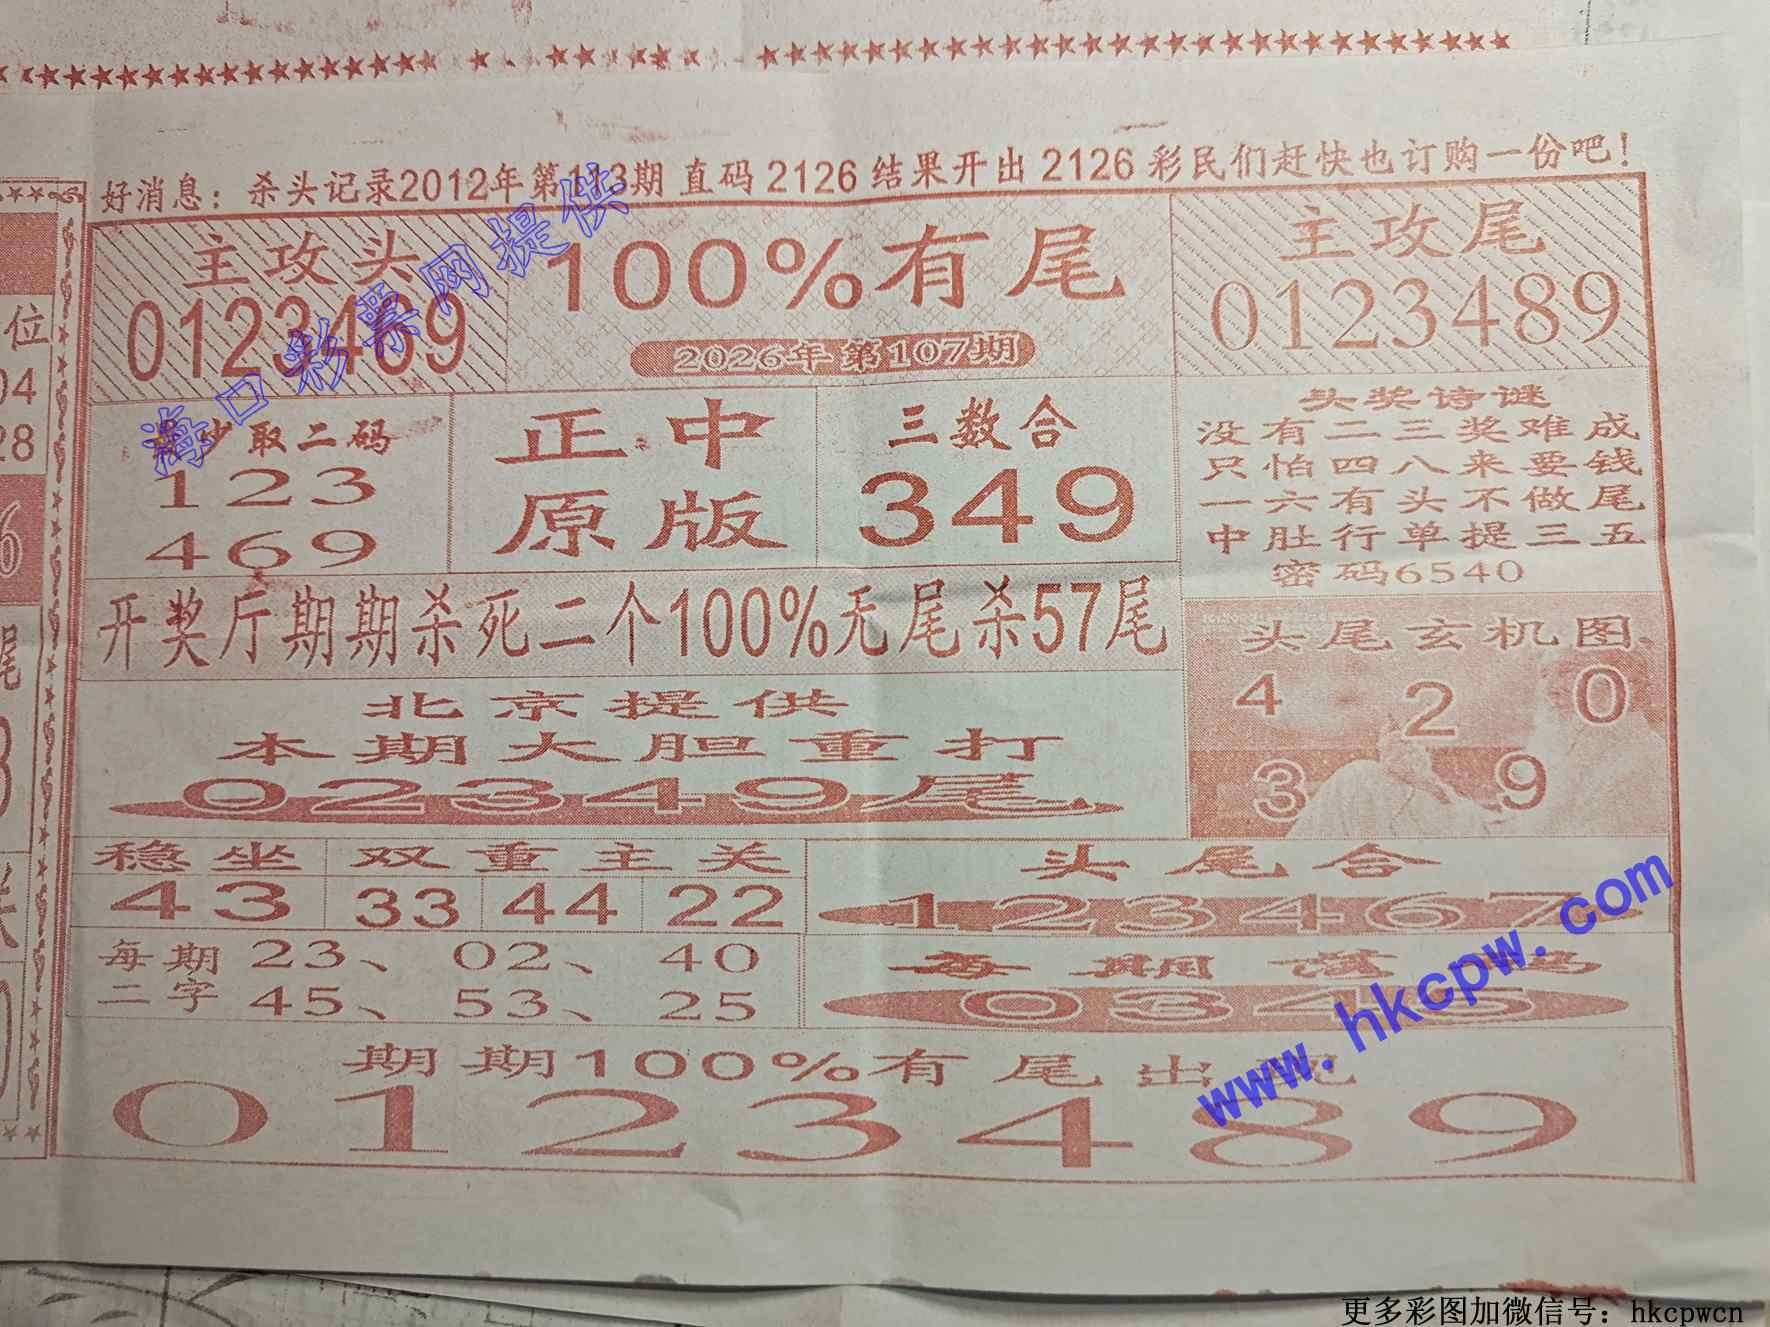 好消息：杀头记录2012年第113期 直码 2126 结果开出 2126 彩民们赶快也订购一份吧！
主攻头
0123469
100%有尾
2026年第107期
主攻尾
0123489
妙取二码
123
469
正中
原版
三数合
349
头奖诗谜
没有二三奖难成
只怕四八来要钱
一六有头不做尾
中肚行单提三五
密码6540
开奖厅期期杀死二个100%无尾杀57尾
头尾玄机图
4 2 0
3 9
北京提供
本期大胆重打
02349尾
稳坐
43
双重主关
33 44 22
头尾合
123467
每期二字
23、 02、 40
45、 53、 25
每期
0345
期期100%有尾出
0123489
位
04
28
6
尾
海口彩票网提供
www.hkcpw.com
更多彩图加微信号：hkcpwcn